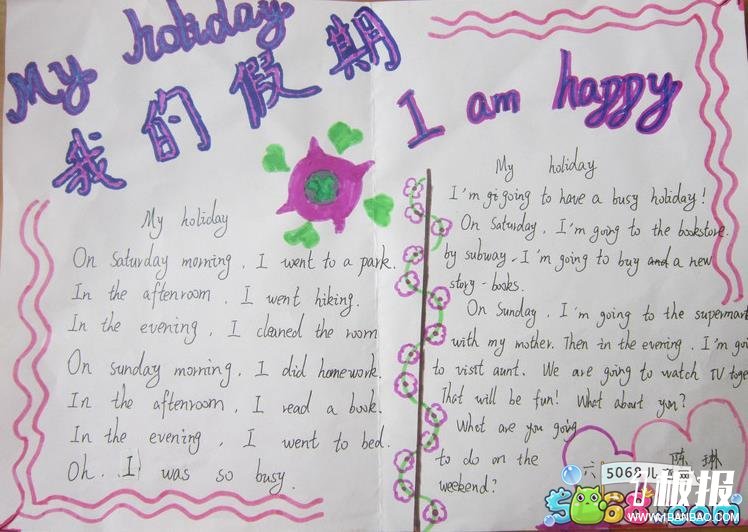 My holiday
我的假期
I am happy
My holiday
On Saturday morning, I went to a park.
In the aftenroom, I went hiking.
In the evening, I cleaned the room
On sunday morning, I did homework.
In the aftenroom, I read a book.
In the evening, I went to bed.
Oh. I was so busy.
My holiday
I'm gi going to have a busy holiday!
On Saturday, I'm going to the bookstore.
by subway. I'm going to buy and a new
story-books.
On Sunday, I'm going to the supermar
with my mother. Then in the evening, I'm goi
to visit aunt. We are going to watch TV toge
That will be fun! What about you?
What are you going
to do on the
weekend?
六
陈琳
5068儿
5068.com
板报
WWW.1BANBAO.COM